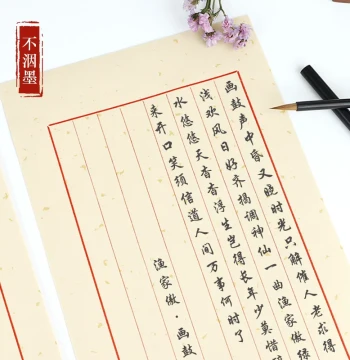 不洇墨
画鼓声中昏又晓时光只解催人老求得
浅欢风日好齐揭调神仙一曲渔家傲绿
水悠悠天杳杳浮生岂得长年少莫惜醉
来开口笑须信道人间万事何时了
渔家傲·画鼓